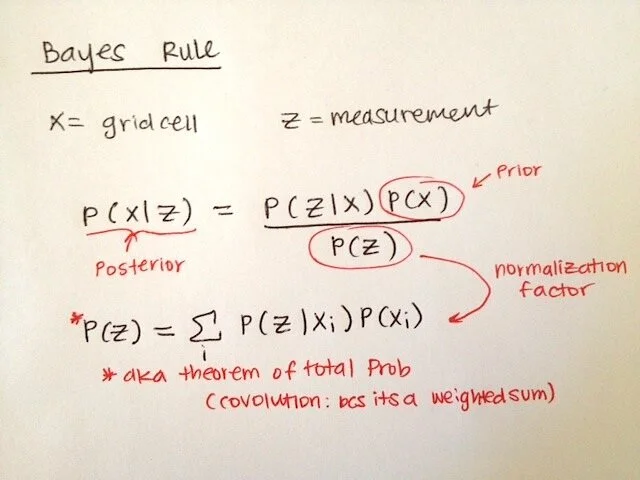 Bayes Rule
X= gridcell
Z = measurement
P(X|Z) = P(Z|X) P(X)
P(Z)
Prior
Posterior
normalization
factor
*P(Z) = ∑ P(Z|Xi)P(Xi)
i
* aka theorem of total Prob
(covolution: bcs its a weighted sum)